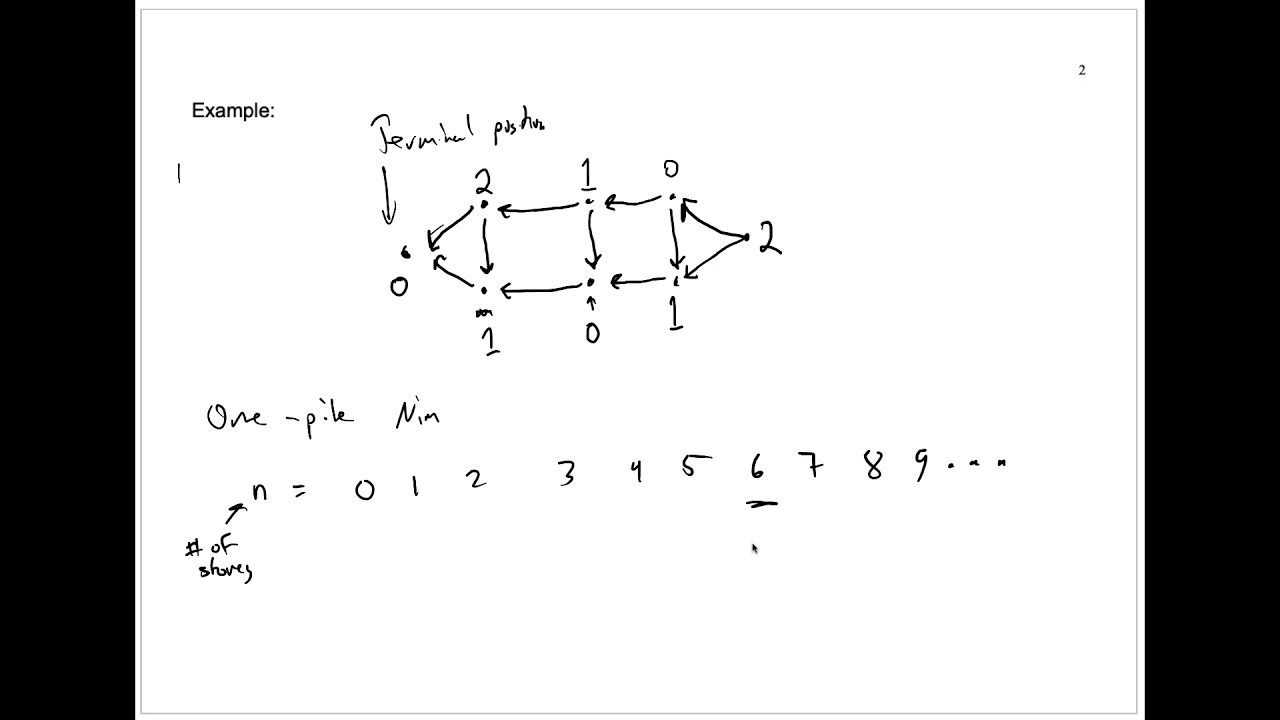 2
Example:
Terminal position
1
2 1 0
2
0
1 0 1
One-pile Nim
n = 0 1 2 3 4 5 6 7 8 9 ...
# of
stones